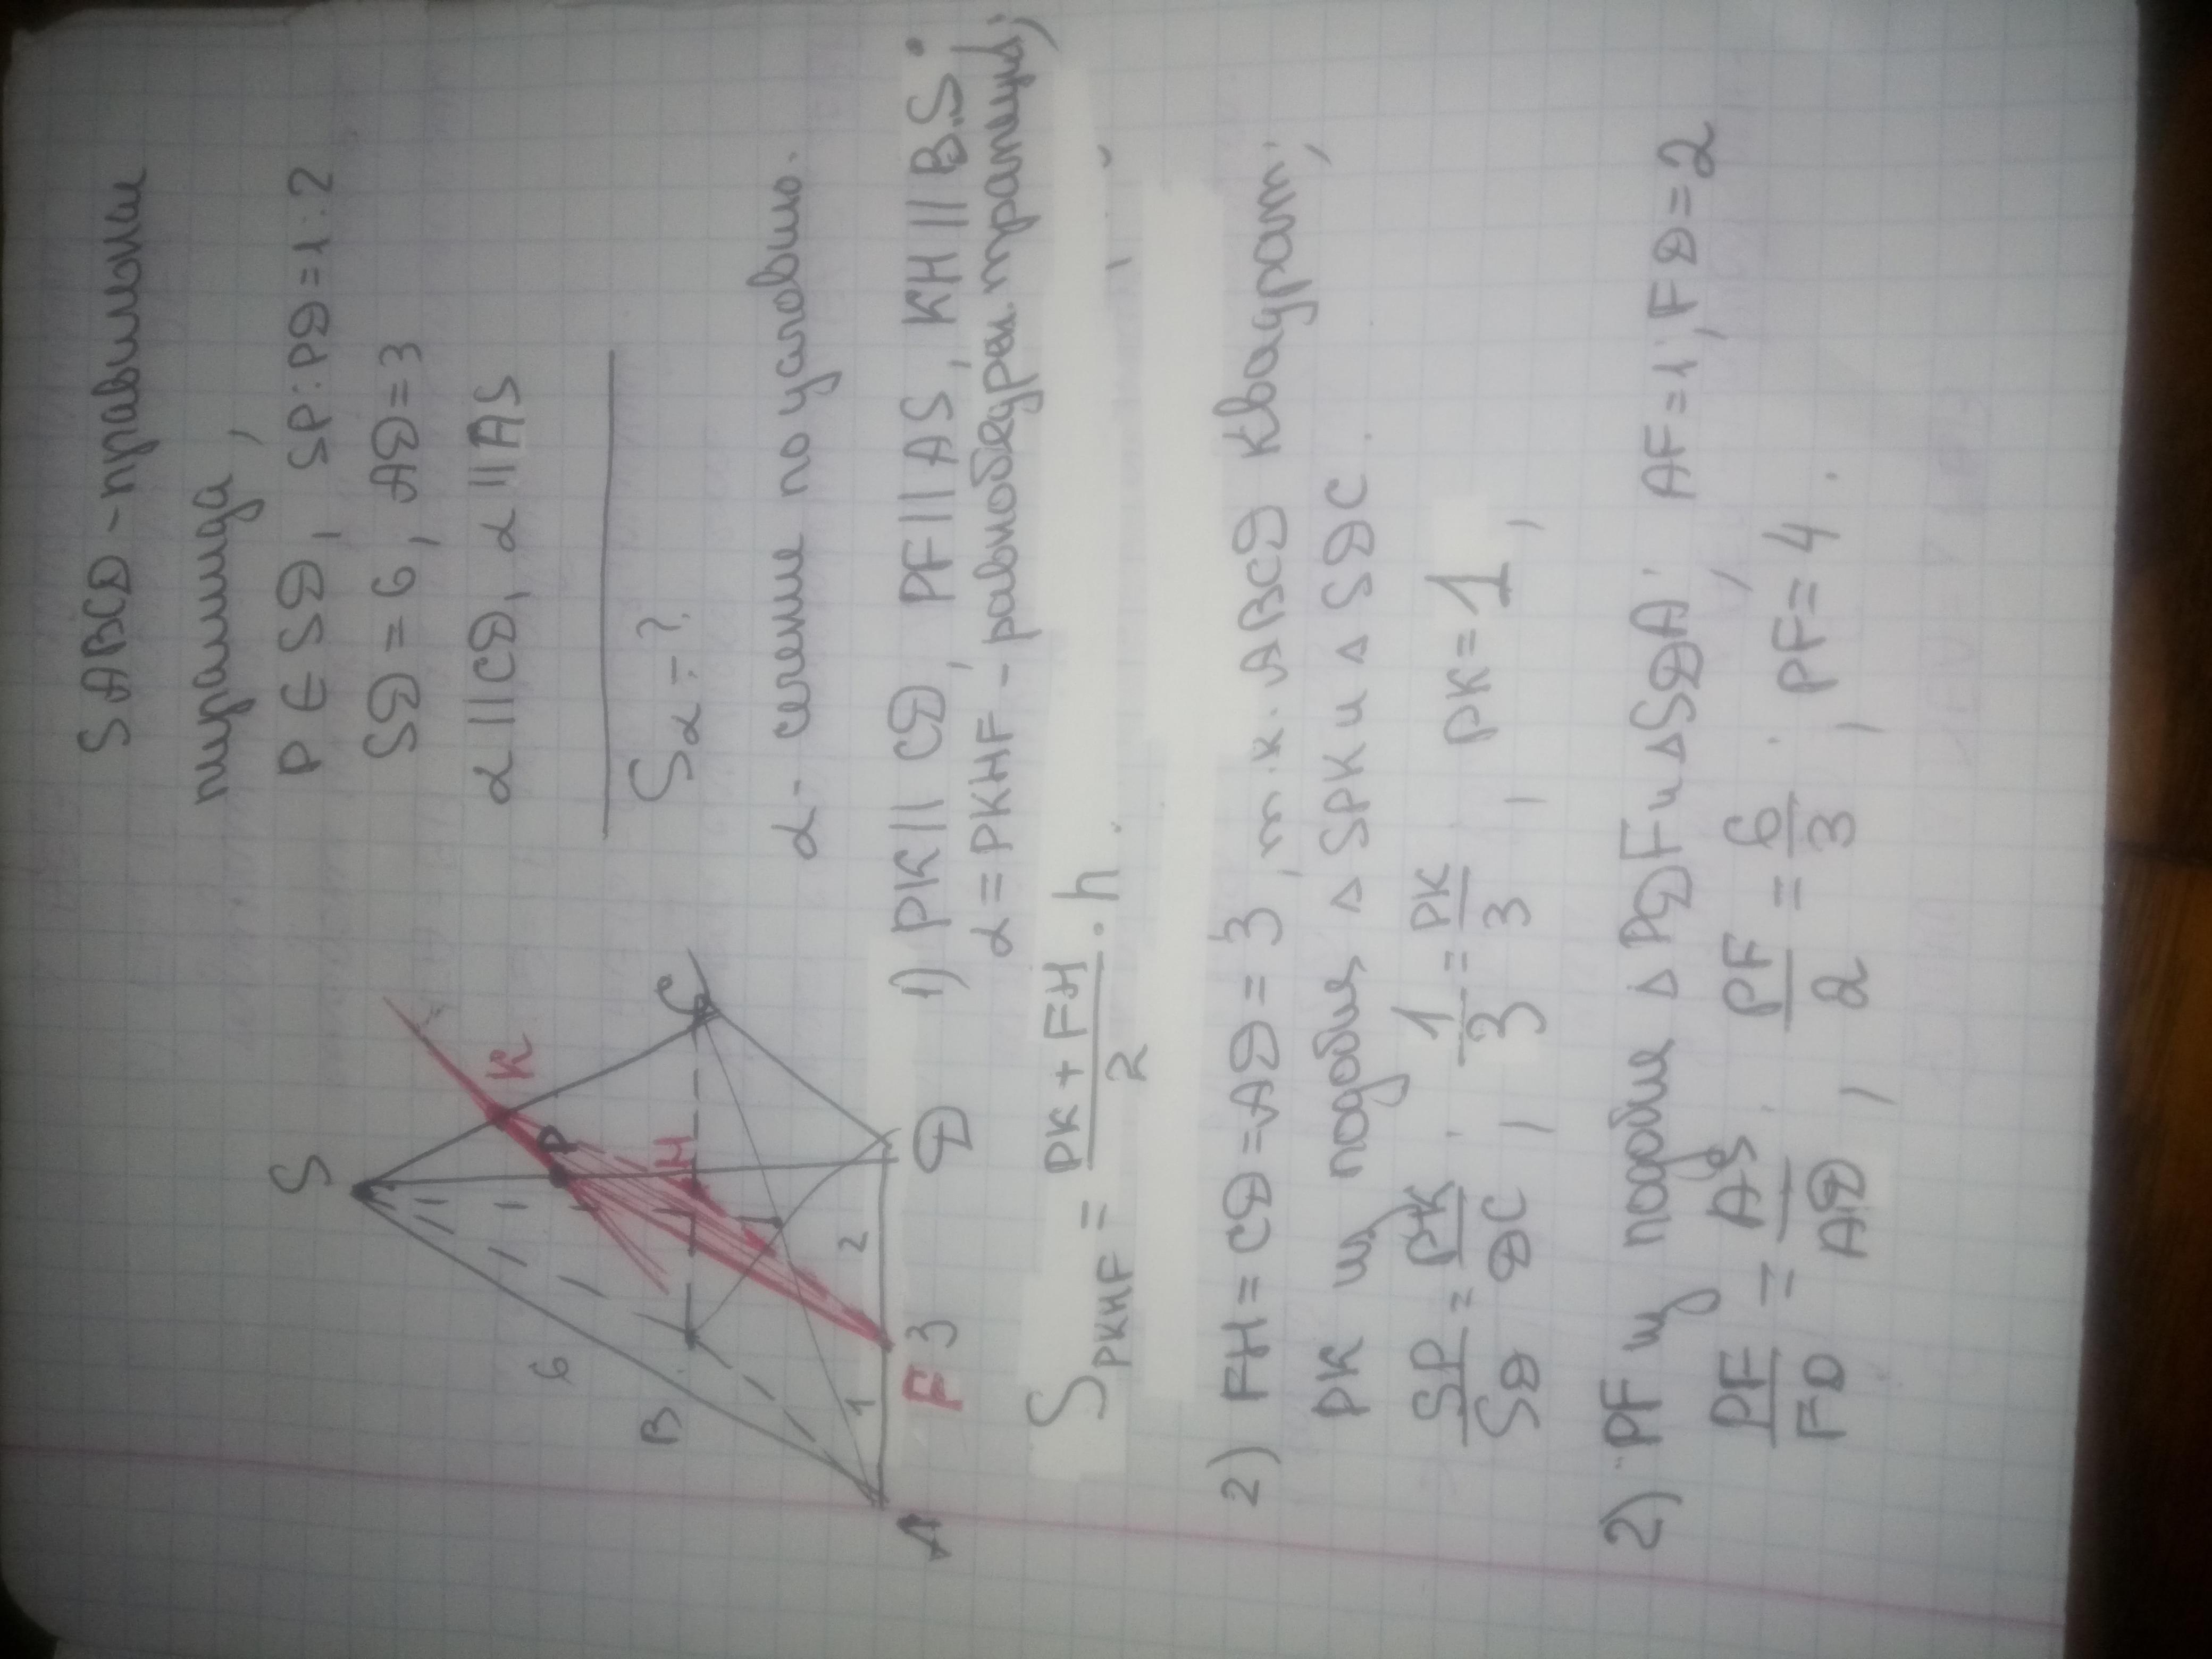 SABCD - правильная
пирамида,
P ∈ SD, SP:PD = 1:2
SD = 6, AD = 3
α || CD, α || AS
Sα = ?
α - сечение по условию.
S
K
P
H
C
6
B
2
1
A
F 3
D
1) PK || CD, PF || AS, KH || BS;
α = PKHF - равнобедрен. трапеция;
S PKHF = PK + FH / 2 · h.
2) FH = CD = AD = 3, т.к. ABCD квадрат;
PK из подобия △ SPK и △ SDC.
SP/SD = PK/DC; 1/3 = PK/3, PK = 1,
2) PF из подобия △ PDF и △ SDA; AF = 1, FD = 2
PF/FD = AS/AD; PF/2 = 6/3; PF = 4.